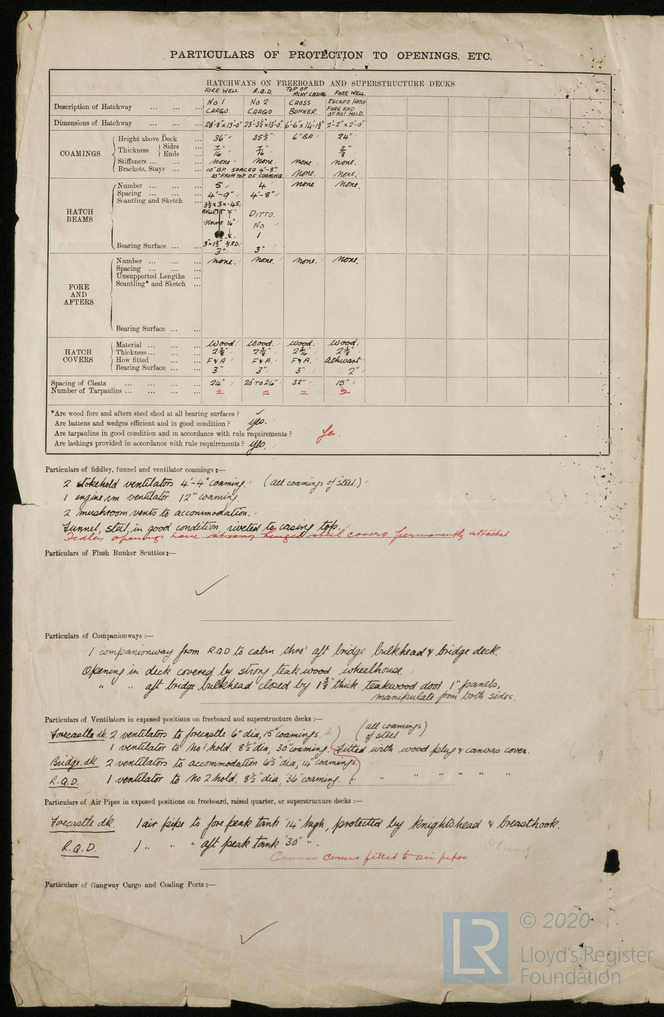 PARTICULARS OF PROTECTION TO OPENINGS, ETC.
HATCHWAYS ON FREEBOARD AND SUPERSTRUCTURE DECKS
FORE WELL. R.Q.D. TOP OF MCHY CASING FORE WELL.
Description of Hatchway ... ... ... No 1 CARGO. No 2 CARGO CROSS BUNKER. ESCAPE HATCH FORE END OF No 1 HOLD.
Dimensions of Hatchway ... ... ... 23'-3½"x13'-0" 2'-2"x2'-0"
COAMINGS
Height above Deck ... 36" 35½" 24"
Thickness { Sides ... 7/16 7/16
Ends ...
Stiffeners ... ... ... none. none. none. none.
Brackets, Stays ... ... 10" B.P. SPACED 4'-8" 10" FROM TOP OF COAMING. none. none.
HATCH BEAMS
Number ... ... ... 5 4 none none.
Spacing ... ... ... 4'-9" 4'-8"
Scantling and Sketch ... DITTO.
No
1
Bearing Surface ... ... 3" 3"
FORE AND AFTERS
Number ... ... ... none. none. none. none.
Spacing ... ... ...
Unsupported Lengths ...
Scantling* and Sketch ...
Bearing Surface ... ...
HATCH COVERS
Material ... ... ... Wood Wood. wood. Wood.
Thickness ... ... ...
How fitted ... F & A F & A. F & A. athwart
Bearing Surface ... ... 3" 3" 3" 2"
Spacing of Cleats ... ... ... ... 24" 25 TO 26" 32" 15"
Number of Tarpaulins ... ... ... ... 2 2 2 2
*Are wood fore and afters steel shod at all bearing surfaces? ✓
Are battens and wedges efficient and in good condition? yes.
Are tarpaulins in good condition and in accordance with rule requirements?
Are lashings provided in accordance with rule requirements? yes.
Particulars of fiddley, funnel and ventilator coamings:—
2 stokehold ventilators 4'-4" coaming. (all coamings of steel)
1 engine rm ventilator 12" coaming.
2 mushroom vents to accommodation.
Funnel, steel, in good condition, riveted to casing top.
Fidley openings have strong hinged steel covers permanently attached
Particulars of Flush Bunker Scuttles:—
✓
Particulars of Companionways:—
1 companionway from R.Q.D to cabin thro' aft bridge bulkhead & bridge deck.
Opening in deck covered by strong teakwood wheelhouse.
" " aft bridge bulkhead closed by thick teakwood door 1" panels,
manipulate from both sides.
Particulars of Ventilators in exposed positions on freeboard and superstructure decks:—
Forecastle dk 2 ventilators to forecastle 6" dia, 15" coamings. (all coamings of steel)
1 ventilator to No 1 hold. 8½" dia, 30" coaming. fitted with wood plug & canvas cover.
Bridge. dk 2 ventilators to accommodation 6½" dia, 14" coamings
R.Q.D. 1 ventilator to No 2 hold. 8½" dia, 36" coaming. " " " " " "
Particulars of Air Pipes in exposed positions on freeboard, raised quarter, or superstructure decks:—
Forecastle dk 1 air pipe to fore peak tank 14" high, protected by knightshead & breasthook.
R.Q.D. 1 " " " aft peak tank 30" ".
Canvas covers fitted to air pipes
Particulars of Gangway Cargo and Coaling Ports:—
✓
LR
© 2020
Lloyd's Register
Foundation